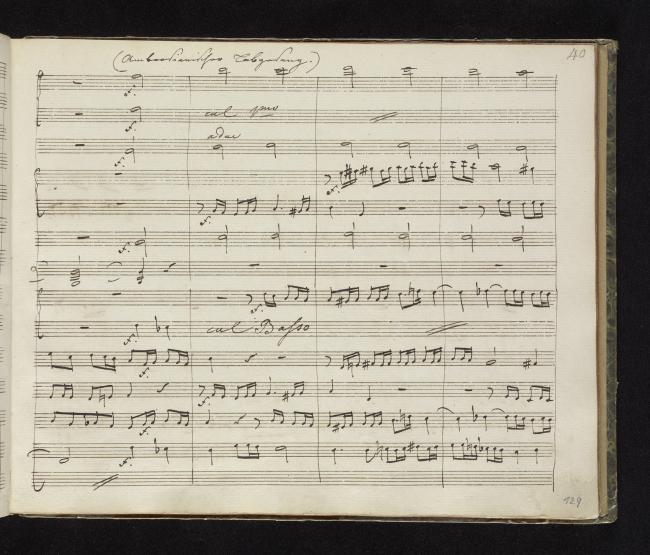 (Ambrosianischer Lobgesang.)
40
col Vmo
a due
col Basso
129